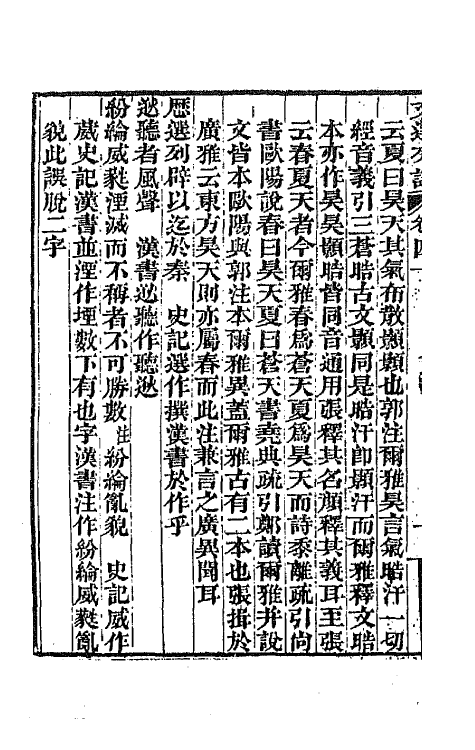 云夏曰昊天其氣布散顥顥也郭注爾雅昊言氣晧汗一切
經音義引三蒼晧古文顥同是晧汗卽顥汗而爾雅釋文晧
本亦作昊昊顥晧皆同音通用張釋其名顏釋其義耳至張
云春夏天者今爾雅春爲蒼天夏爲昊天而詩黍離疏引尙
書歐陽說春曰昊天夏曰蒼天書堯典疏引鄭讀爾雅并說
文皆本歐陽與郭注本爾雅異蓋爾雅古有二本也張揖於
廣雅云東方昊天則亦屬春而此注兼言之廣異聞耳
歷選列辟以迄於秦　史記選作撰漢書於作乎
逖聽者風聲　漢書逖聽作聽逖
紛綸威蕤湮滅而不稱者不可勝數注紛綸亂貌　史記威作
葳史記漢書並湮作堙數下有也字漢書注作紛綸威蕤亂
貌此誤脫二字